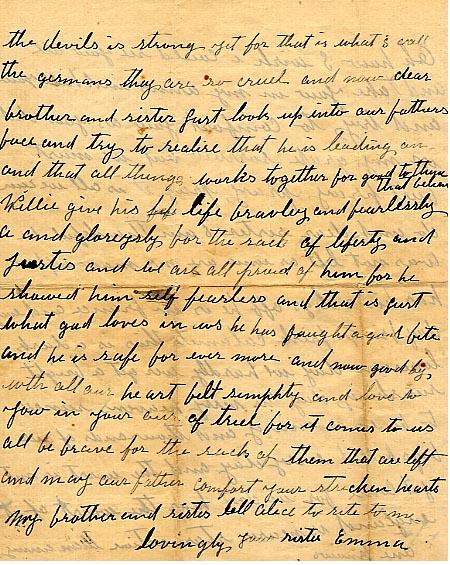 the devils is strong yet for that is what I call
the germans they are so cruel and now dear
brother and sister gust look up into our fathers
face and try to realise that he is leading on
and that all things works together for good to them
that believe
Willie give his life bravley and fearlessly
a and gloreysly for the sack of liferty and
Justis and we are all proud of him for he
showed him self fearless and that is gust
what god loves in us he has faught a good fite
and he is safe for ever more and now good by
with all our heart felt simphty and love to
yow in your our of truel for it comes to us
all be brave for the sack of them that are left
and may our father comfort your stricken hearts
my brother and sister tell alice to rite to me
lovingly your sister Emma